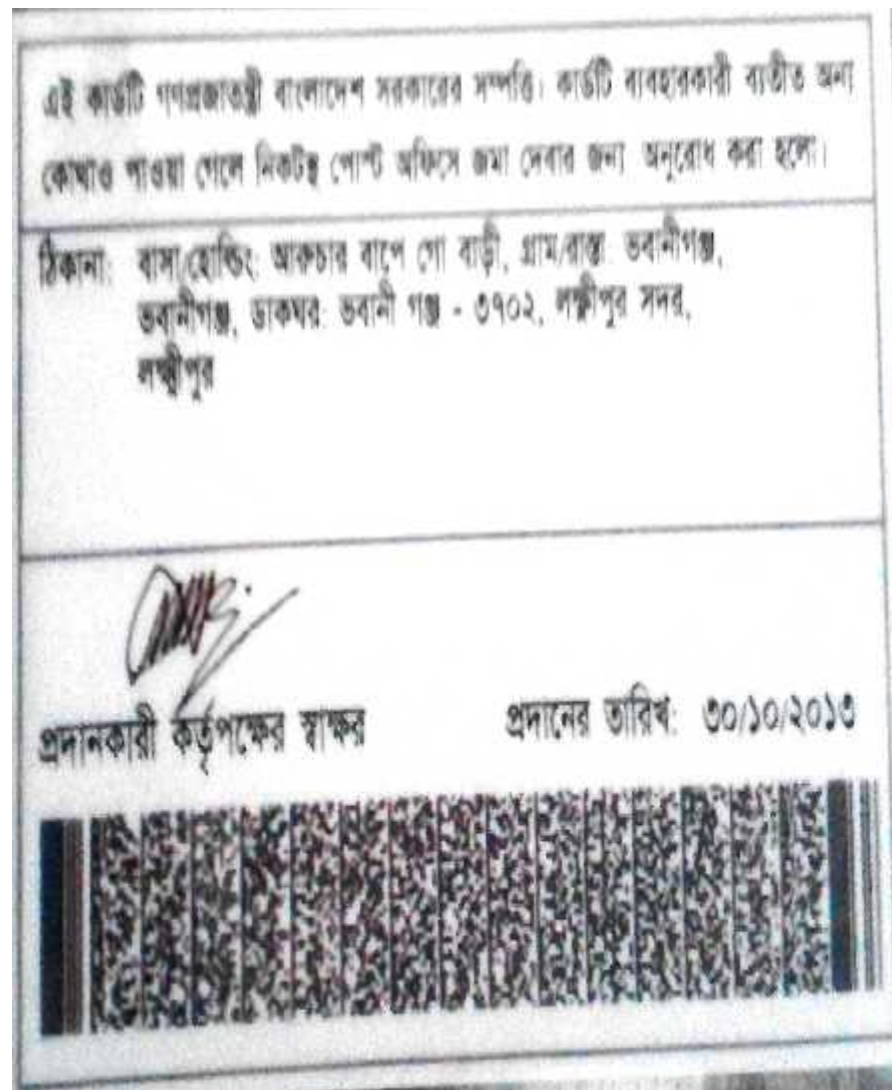 এই কার্ডটি গণপ্রজাতন্ত্রী বাংলাদেশ সরকারের সম্পত্তি। কার্ডটি ব্যবহারকারী ব্যতীত অন্য
কোথাও পাওয়া গেলে নিকটস্থ পোস্ট অফিসে জমা দেবার জন্য অনুরোধ করা হলো।
ঠিকানা: বাসা/হোল্ডিং: আরুচার বাপে গো বাড়ী, গ্রাম/রাস্তা: ভবানীগঞ্জ,
ভবানীগঞ্জ, ডাকঘর: ভবানী গঞ্জ - ৩৭০২, লক্ষ্মীপুর সদর,
লক্ষ্মীপুর
প্রদানকারী কর্তৃপক্ষের স্বাক্ষর প্রদানের তারিখ: ৩০/১০/২০১৩